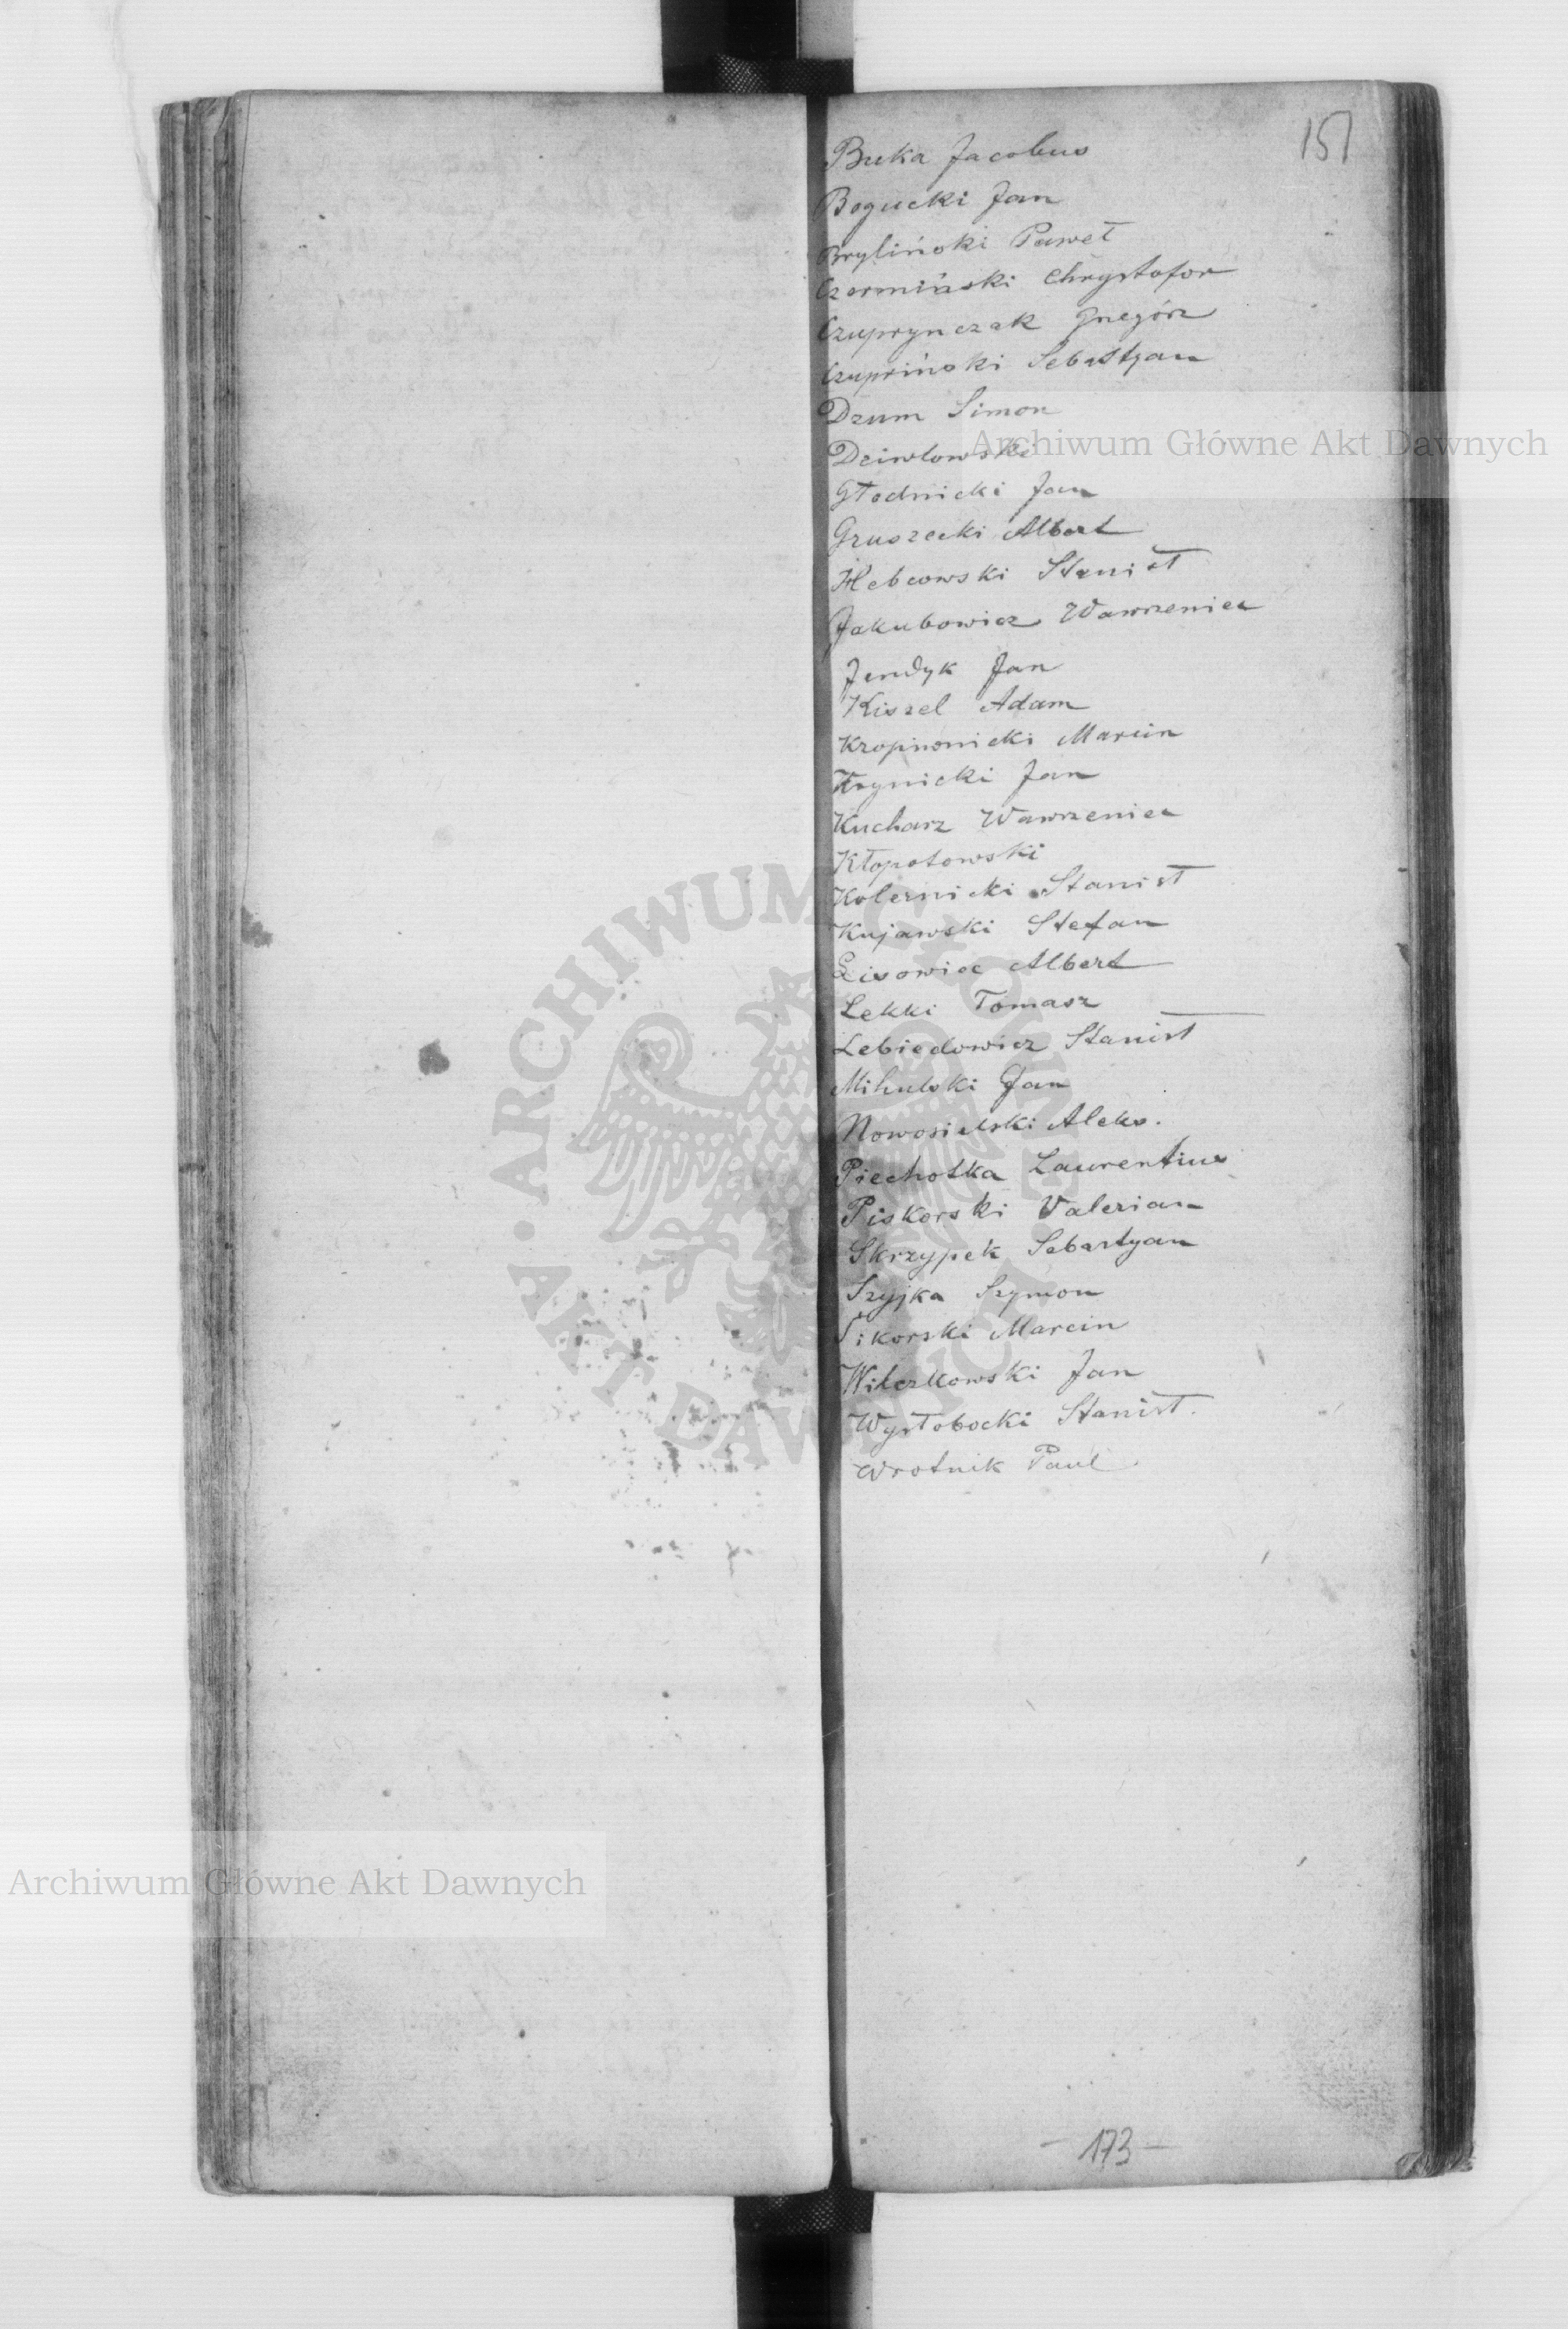 151
Buka Jacobus
Bogucki Jan
Bryliński Paweł
Czermiński Chrystofor
Czuprynczak Grzegórz
Czupriński Sebastyan
Dzum Simon
Archiwum Główne Akt Dawnych
Głodnicki Jan
Gruszecki Albert
Hebcowski Stanisł
Jakubowicz Wawrzeniec
Jendyk Jan
Kiszel Adam
Kropiwnicki Marcin
Krynicki Jan
Kucharz Wawrzeniec
Kłopotowski
Kolernicki Stanisł
Kujawski Stefan
Lisowiec Albert
Lekki Tomasz
Lebiedowicz Stanisł
Mihulski Jan
Nowosielski Aleks.
Piechotka Laurentius
Piskorski Valerian
Skrzypek Sebastyan
Szyjka Szymon
Sikorski Marcin
Wilczkowski Jan
Wysłobocki Stanisł.
Wrotnik Paul
ARCHIWUM GŁÓWNE AKT DAWNYCH
Archiwum Główne Akt Dawnych
- 173 -